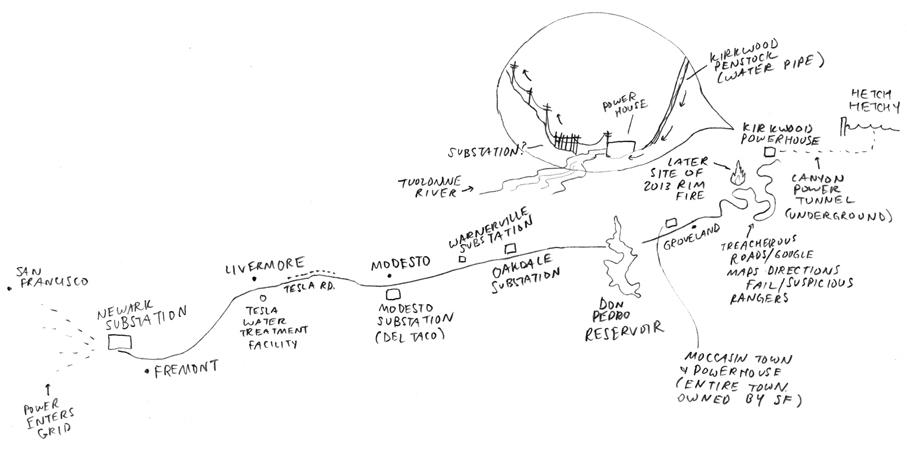 KIRKWOOD
PENSTOCK
(WATER PIPE)
POWER
HOUSE
SUBSTATION?
TUOLOMNE
RIVER
HETCH
HETCHY
KIRKWOOD
POWERHOUSE
LATER
SITE OF
2013 RIM
FIRE
CANYON
POWER
TUNNEL
(UNDERGROUND)
GROVELAND
TREACHEROUS
ROADS/GOOGLE
MAPS DIRECTIONS
FAIL/SUSPICIOUS
RANGERS
WARNERVILLE
SUBSTATION
OAKDALE
SUBSTATION
DON
PEDRO
RESERVOIR
MOCCASIN TOWN
& POWERHOUSE
(ENTIRE TOWN
OWNED BY SF)
MODESTO
MODESTO
SUBSTATION
(DEL TACO)
LIVERMORE
TESLA RD.
TESLA
WATER
TREATMENT
FACILITY
SAN
FRANCISCO
NEWARK
SUBSTATION
FREMONT
POWER
ENTERS
GRID